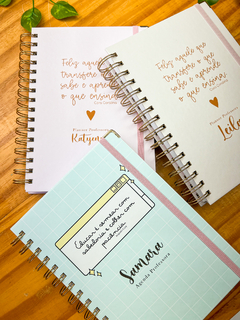 Feliz aquele que
transfere o que
sabe e aprende
o que ensina
Cora Coralina
Katijen
Feliz aquele que
transfere o que
sabe e aprende
o que ensina
Leila
Educar é semear com
sabedoria e colher com
paciência
Samara
Agenda Professora